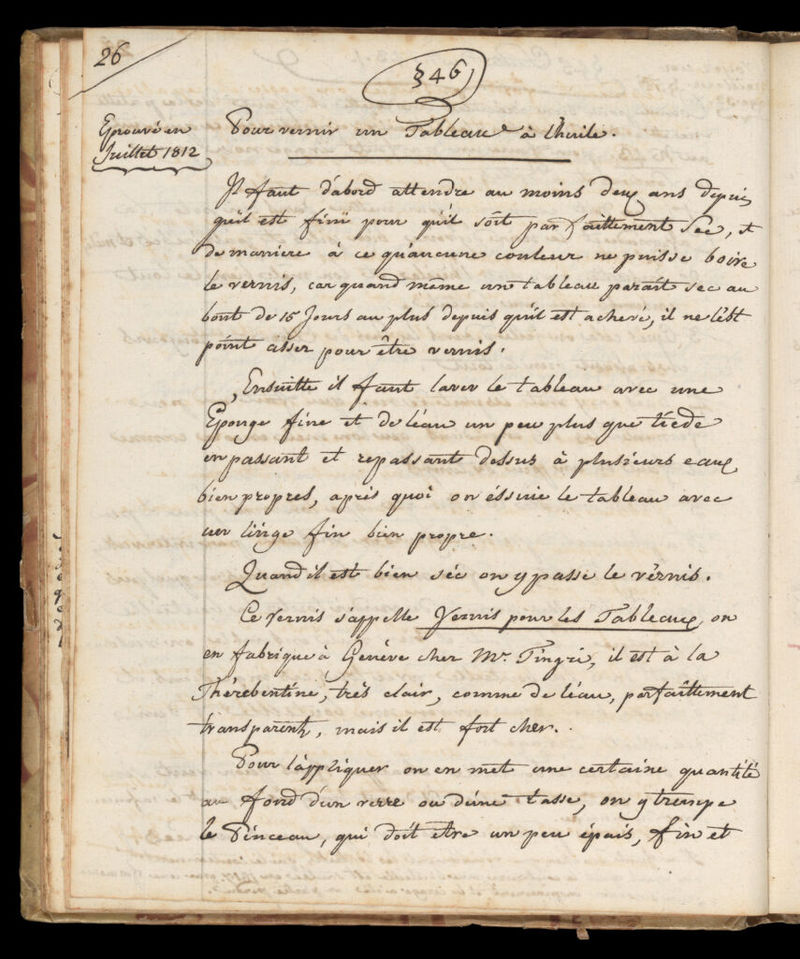 26
§ 46
Eprouvé en
Juillet 1812
Pour vernir un Tableau à l'huile.
Il faut d'abord attendre au moins deux ans depuis
qu'il est fini pour qu'il soit parfaittement Sec, et
de maniere à ce qu'aucune couleur ne puisse boire
le vernis, car quand même un tableau paraît sec au
bout de 15 Jours au plus depuis qu'il est achevé, il ne l'est
point assez pour être vernis.
Ensuitte il faut laver le tableau avec une
Eponge fine et de l'eau un peu plus que tiede
en passant et repassant dessus à plusieurs eaux
bien propres, après quoi on éssuie le tableau avec
un linge fin bien propre.
Quand il est bien séc on y passe le vérnis.
Ce Vernis s'appelle Vernis pour les Tableaux, on
en fabrique à Genève chez Mr. Tingri, il est à la
Thérebentine, très clair, comme de l'eau, parfaittement
transparent, mais il est fort cher.
Pour l'appliquer on en met une certaine quantité
au fond d'un verre ou d'une tasse, on y trempe
le Pinceau, qui doit etre un peu épais, fin et